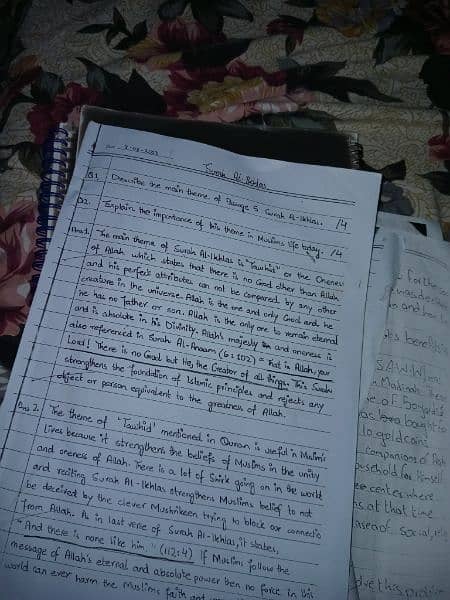 Surah Al-Ikhlas
Q1. Describe the main theme of Passage 5. Surah Al-Ikhlas. /4
Q2. Explain the importance of this theme in Muslims life today. /4
Ans 1. The main theme of Surah Al-Ikhlas is "Tawhid" or the Oneness
of Allah which states that there is no God other than Allah
and his perfect attributes can not be compared by any other
creature in the universe. Allah is the one and only God and he
he has no father or son. Allah is the only one to remain eternal
and is absolute in his Divinity. Allah's majesty and oneness is
also referenced in Surah Al-Anaam (6:102) = That is Allah, your
Lord! There is no God but He, the Creator of all things. This Surah
strengthens the foundation of Islamic principles and rejects any
object or person equivalent to the greatness of Allah.
Ans 2. The theme of 'Tawhid' mentioned in Quran is useful in Muslim's
lives because it strengthens the beliefs of Muslims in the unity
and oneness of Allah. There is a lot of Shirk going on in the world
and reciting Surah Al-Ikhlas strengthens Muslims belief to not
be deceived by the clever Mushrikeen trying to block our connectio
from Allah. As in last verse of Surah Al-Ikhlas, it states,
"And there is none like him" (112:4) If Muslims follow the
message of Allah's eternal and absolute power then no force in this
world can ever harm the Muslims faith
for the
was
and
benefits
S.A.W. When
Madinah. There
bought
to gold coins
companions of
household for himself
center where
at that time
social,
this